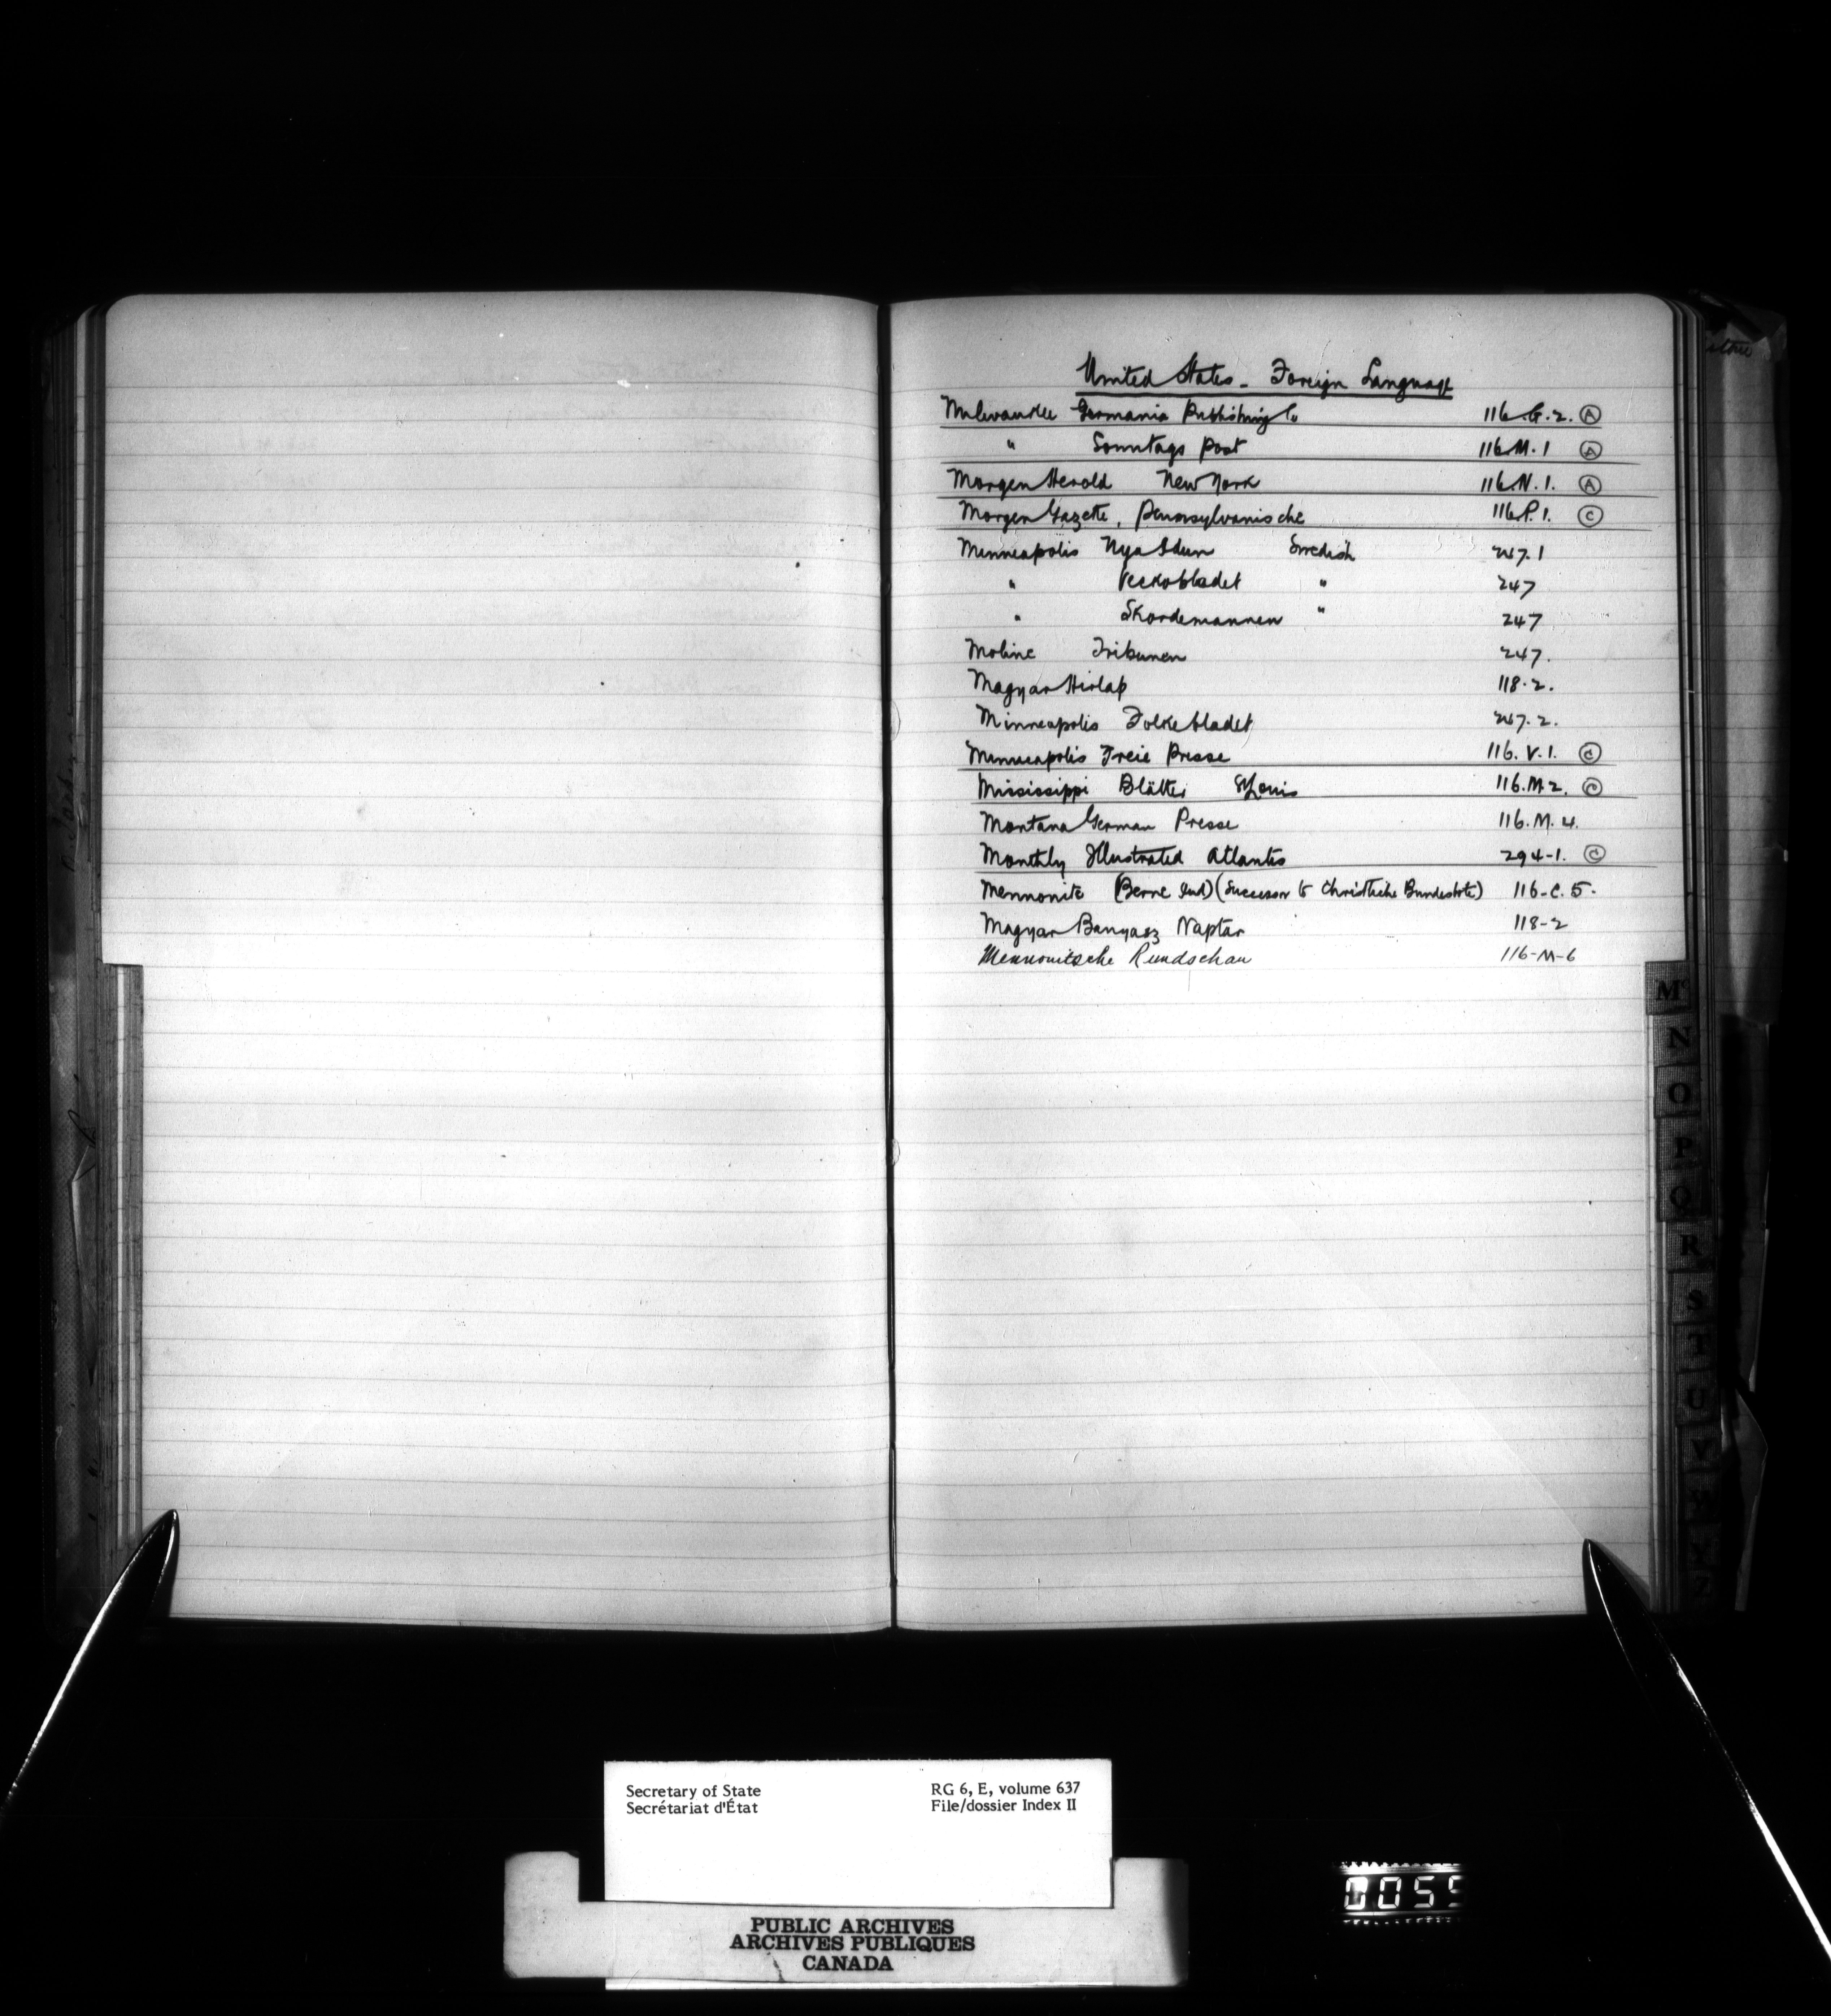 United States - Foreign Language
Milwaukee Germania Publishing Co 116.G.2. Ⓐ
" Sonntags Post 116.M.1 Ⓐ
Morgen Herold New York 116.N.1. Ⓐ
Morgen Gazette, Pennsylvanische 116.P.1. Ⓒ
Minneapolis Nya Idun Swedish 247.1
" Veckobladet " 247
" Skordemannen " 247
Moline Tribunen 247.
Magyar Hirlap 118.2.
Minneapolis Folkebladet 247.2.
Minneapolis Freie Presse 116.V.1. Ⓒ
Mississippi Blätter St Louis 116.M.2. Ⓒ
Montana German Presse 116.M.4.
Monthly Illustrated Atlantis 294-1. Ⓒ
Mennonite (Berne Ind) (Successor to Christliche Bundesbote) 116-C.5.
Magyar Banyasz Naptar 118-2
Mennonitsche Rundschau 116-M-6
Mc
N
O
P
Q
R
S
T
U
V
Secretary of State RG 6, E, volume 637
Secrétariat d'État File/dossier Index II
PUBLIC ARCHIVES
ARCHIVES PUBLIQUES
CANADA
0055